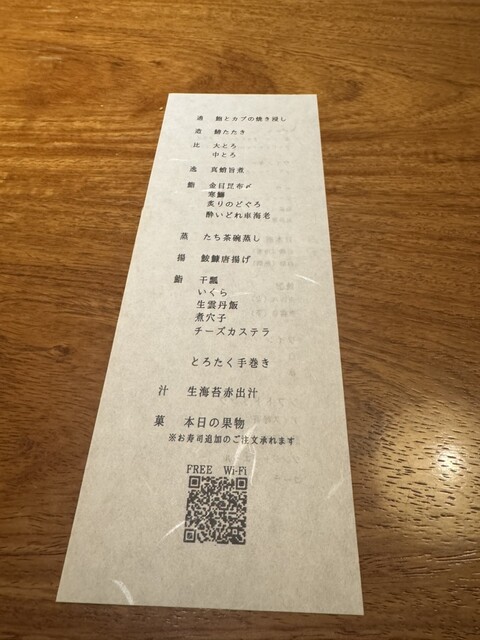 進 鮑とカブの焼き浸し
造 鯖たたき
比 大とろ
中とろ
逸 真蛸旨煮
鮨 金目昆布〆
寒鰤
炙りのどぐろ
酔いどれ車海老
蒸 たち茶碗蒸し
揚 鮟鱇唐揚げ
鮨 干瓢
いくら
生雲丹飯
煮穴子
チーズカステラ
とろたく手巻き
汁 生海苔赤出汁
菓 本日の果物
※お寿司追加のご注文承れます
FREE Wi-Fi